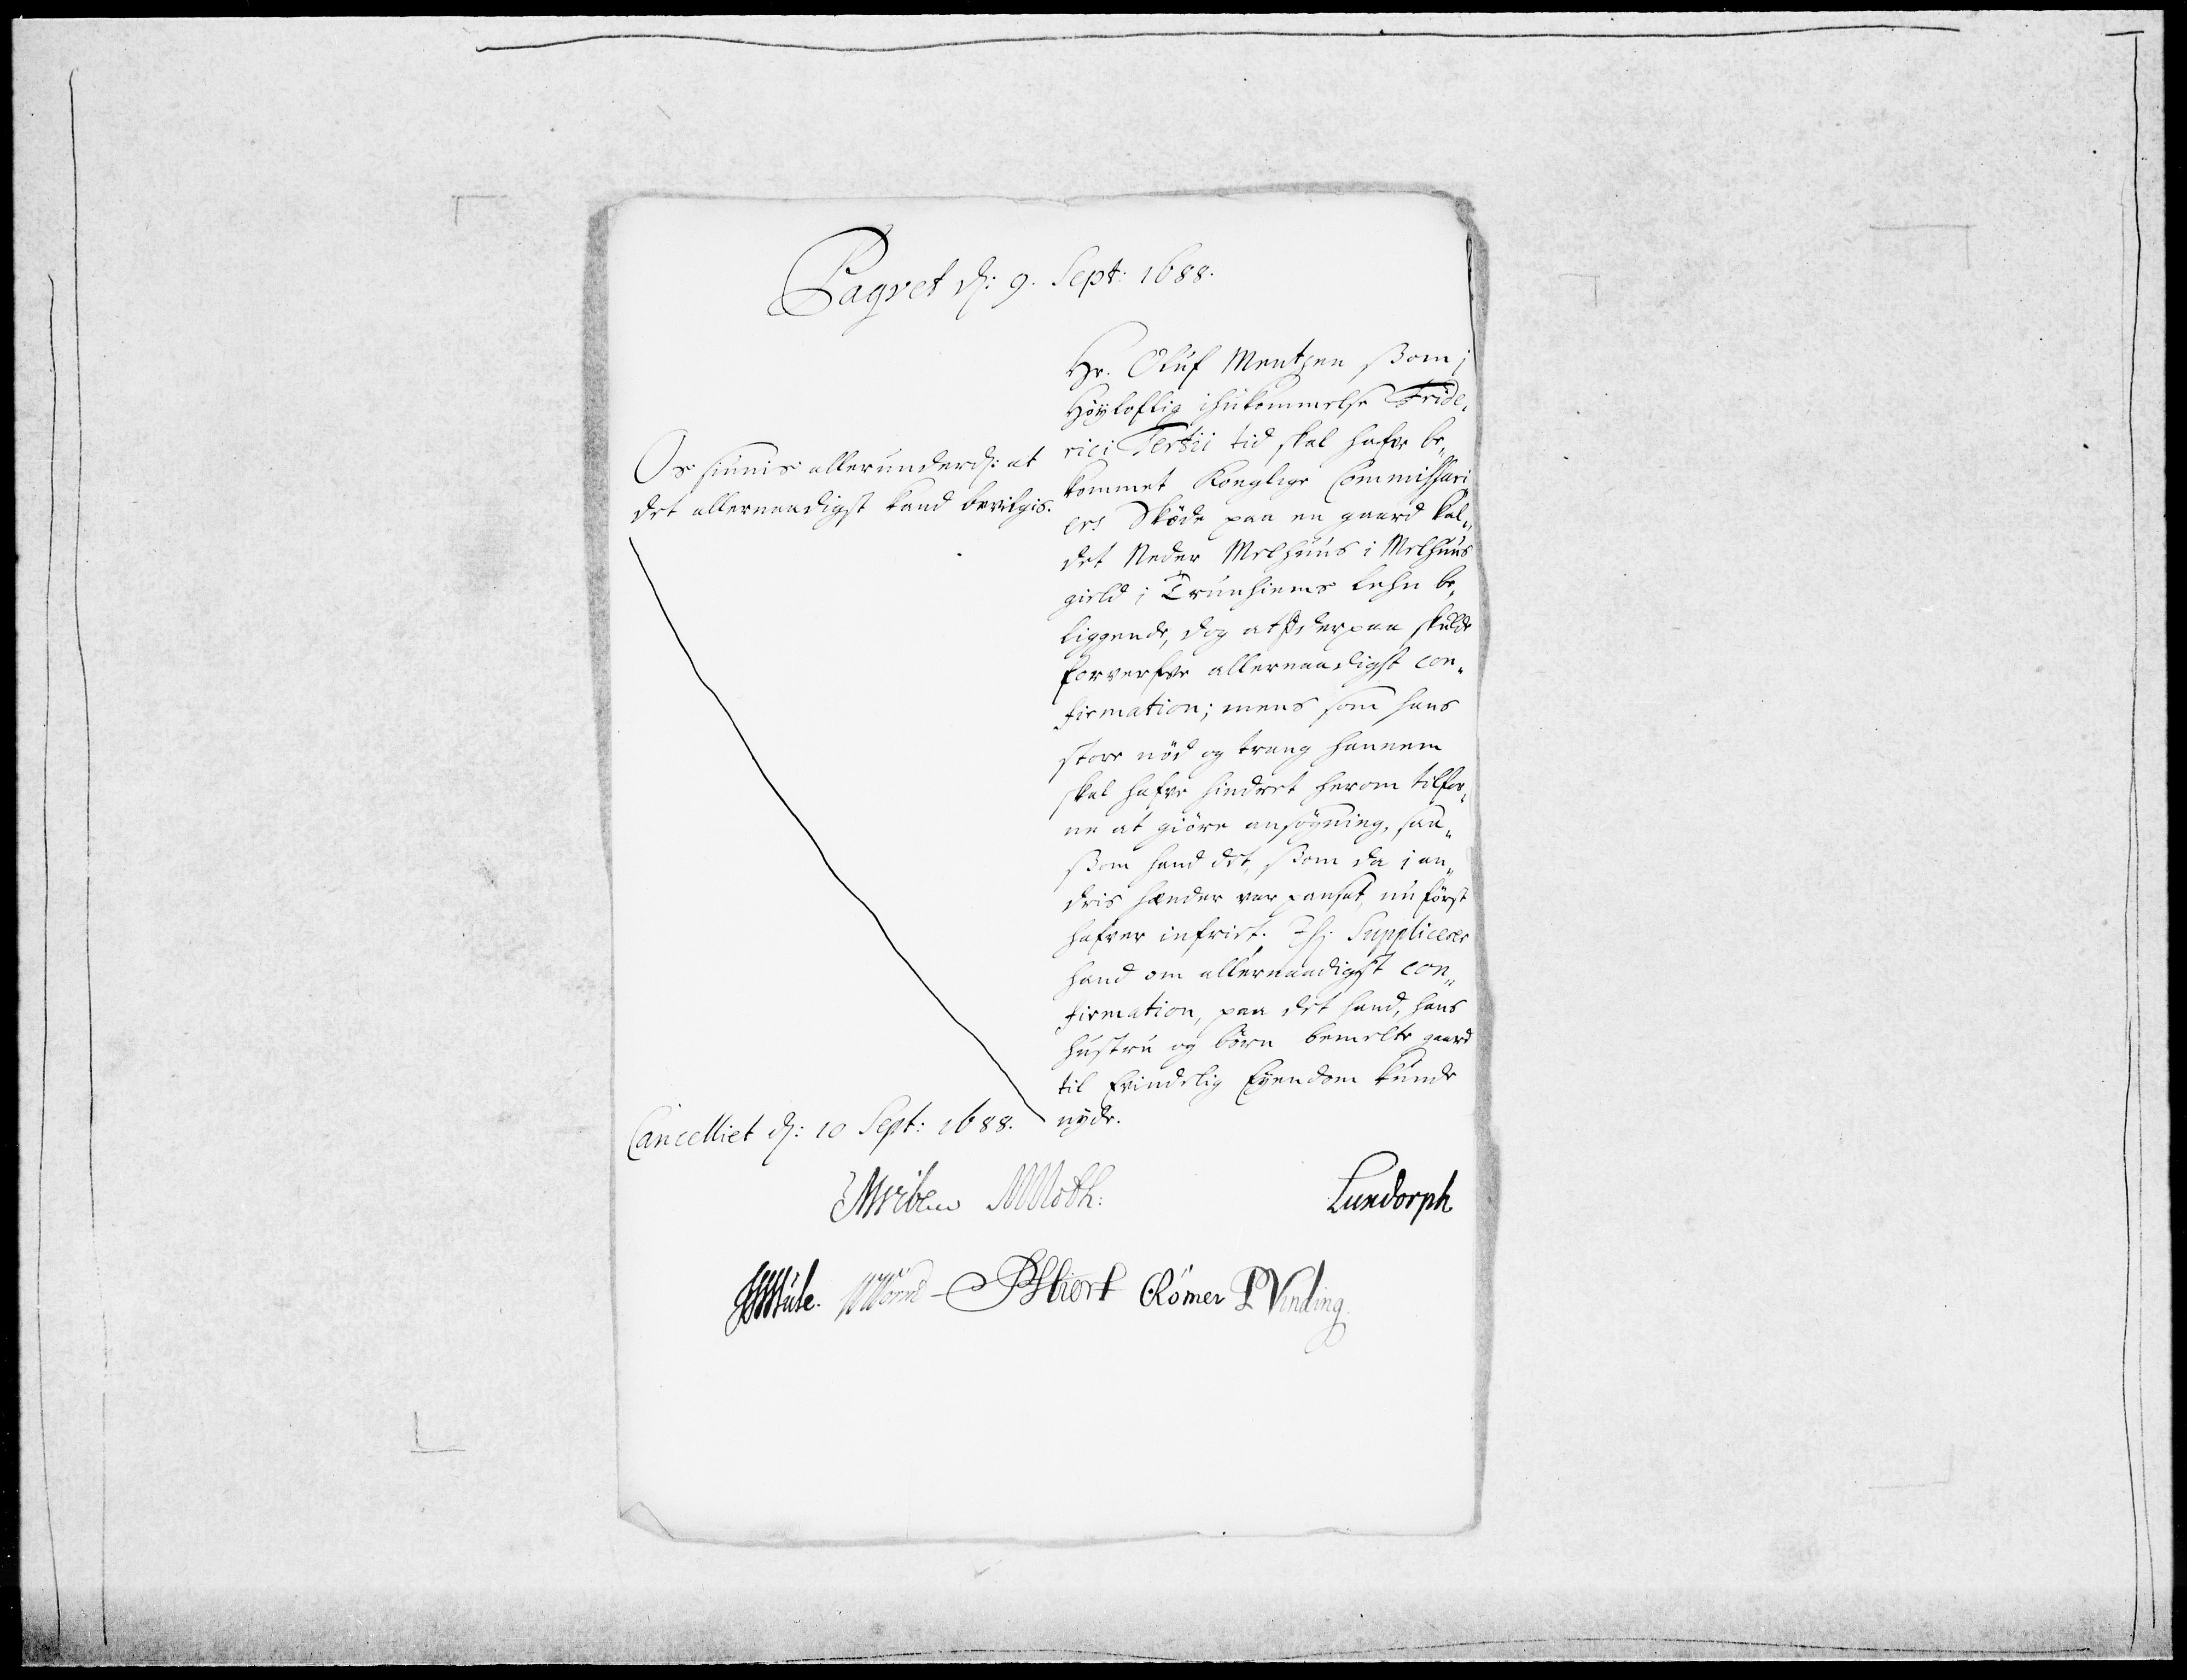 Pagvet d: 9. Sept: 1688.
Hr. Oluf Mentzen ßom i
Höyloflig ihukommelse Fride„
rici Tertii tid skal hafve be„
kommet Konglige Commissari
ers Sköde paa en gaard kal„
det Neder Melhuus i Melhuus
gield i Trunhiems Lehn be„
liggende, dog at derpaa skulde
forverfve allernaadigst con„
firmation; mens som hans
store nöd og trang hannem
skal hafve hindret herom tilfor„
ne at giöre ansögning, saa„
ßom hand det, ßom da i an„
dris hænder var pansat, nu först
hafver infriet. Thi Supplicerer
hand om allernaadigst con„
firmation, paa det hand, hans
hustru og börn bemelte gaard
til Evindelig Eyendom kunde
nyde.
Os siunis allerunderd: at
det allernaadigst kand bevilgis.
Cancelliet d: 10 Sept: 1688.
MWiben MMoth:
Lundorph
Mule. WWorm PSkiort ORömer PVinding